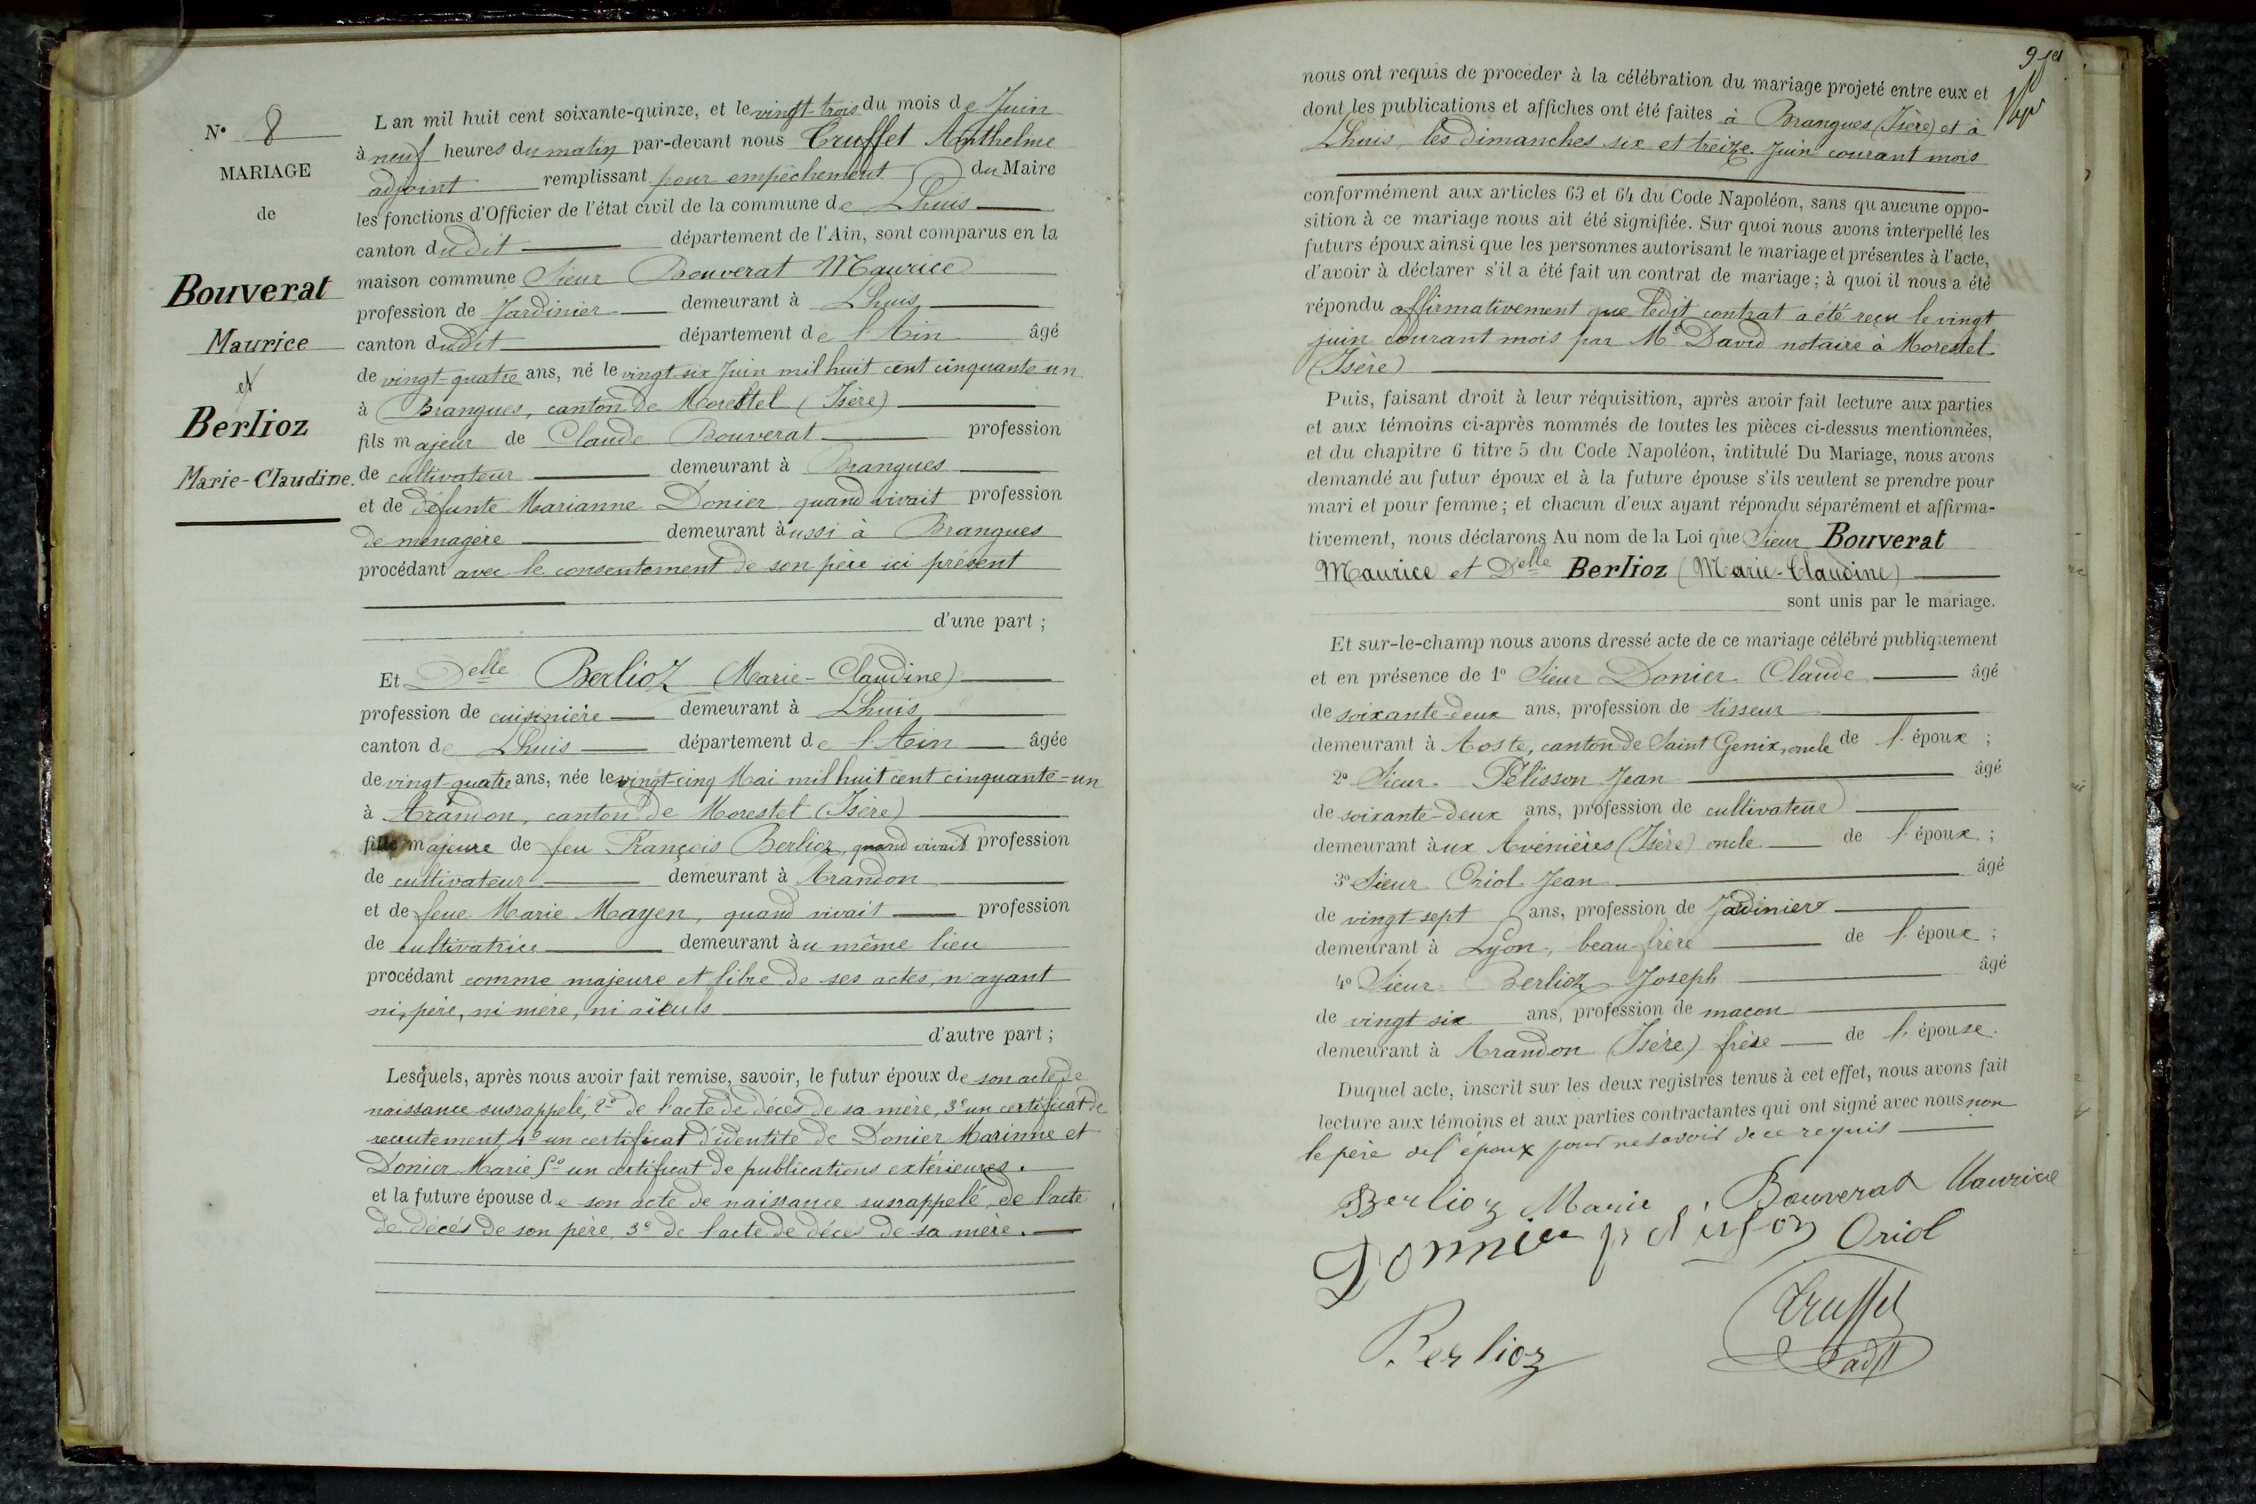 N° 8
MARIAGE
de
Bouverat
Maurice
et
Berlioz
Marie-Claudine.
L'an mil huit cent soixante-quinze, et le vingt-trois du mois de Juin
à neuf heures du matin par-devant nous Truffet Anthelme
adjoint remplissant pour empêchement du Maire
les fonctions d'Officier de l'état civil de la commune de Lhuis
canton dudit département de l'Ain, sont comparus en la
maison commune Sieur Bouverat Maurice
profession de Jardinier demeurant à Lhuis
canton dudit département de l'Ain âgé
de vingt-quatre ans, né le vingt six Juin mil huit cent cinquante un
à Brangues, canton de Morestel (Isère)
fils majeur de Claude Bouverat profession
de cultivateur demeurant à Brangues
et de défunte Marianne Donier quand vivait profession
de ménagère demeurant aussi à Brangues
procédant avec le consentement de son père ici présent
d'une part ;
Et Delle Berlioz (Marie-Claudine)
profession de cuisinière demeurant à Lhuis
canton de Lhuis département de l'Ain âgée
de vingt-quatre ans, née le vingt-cinq Mai mil huit cent cinquante-un
à Arandon, canton de Morestel (Isère)
fille majeure de feu François Berlioz, quand vivait profession
de cultivateur demeurant à Arandon
et de feue Marie Mayen, quand vivait profession
de cultivatrice demeurant au même lieu
procédant comme majeure et libre de ses actes, n'ayant
ni père, ni mère, ni aïeuls
d'autre part ;
Lesquels, après nous avoir fait remise, savoir, le futur époux de son acte de
naissance susrappelé, 2° de l'acte de décès de sa mère, 3° un certificat de
recrutement, 4° un certificat d'identité de Donier Marinne et
Donier Marie 5° un certificat de publications extérieures.
et la future épouse de son acte de naissance susrappelé, de l'acte
de décés de son père, 3° de l'acte de décès de sa mère.
nous ont requis de procéder à la célébration du mariage projeté entre eux et
dont les publications et affiches ont été faites à Brangues (Isère) et à
Lhuis, les dimanches six et treize Juin courant mois
conformément aux articles 63 et 64 du Code Napoléon, sans qu'aucune oppo-
sition à ce mariage nous ait été signifiée. Sur quoi nous avons interpellé les
futurs époux ainsi que les personnes autorisant le mariage et présentes à l'acte,
d'avoir à déclarer s'il a été fait un contrat de mariage ; à quoi il nous a été
répondu affirmativement que ledit contrat a été reçu le vingt
juin courant mois par Me David notaire à Morestel
(Isère)
Puis, faisant droit à leur réquisition, après avoir fait lecture aux parties
et aux témoins ci-après nommés de toutes les pièces ci-dessus mentionnées,
et du chapitre 6 titre 5 du Code Napoléon, intitulé Du Mariage, nous avons
demandé au futur époux et à la future épouse s'ils veulent se prendre pour
mari et pour femme ; et chacun d'eux ayant répondu séparément et affirma-
tivement, nous déclarons Au nom de la Loi que Sieur Bouverat
Maurice et Delle Berlioz (Marie-Claudine)
sont unis par le mariage.
Et sur-le-champ nous avons dressé acte de ce mariage célébré publiquement
et en présence de 1° Sieur Donier Claude âgé
de soixante-deux ans, profession de tisseur
demeurant à Aoste, canton de Saint Genix, oncle de l'époux ;
2° Sieur Pélisson Jean âgé
de soixante-deux ans, profession de cultivateur
demeurant aux Avenières (Isère) oncle de l'époux ;
3° Sieur Oriol Jean âgé
de vingt sept ans, profession de Jardinier
demeurant à Lyon, beau-frère de l'époux ;
4° Sieur Berlioz Joseph âgé
de vingt six ans, profession de maçon
demeurant à Arandon (Isère) frère de l'épouse.
Duquel acte, inscrit sur les deux registres tenus à cet effet, nous avons fait
lecture aux témoins et aux parties contractantes qui ont signé avec nous non
le père de l'époux pour ne savoir de ce requis
Berlioz Marie Bouverat Maurice
Donnier pelisson Oriol
Truffet
Berlioz adjt